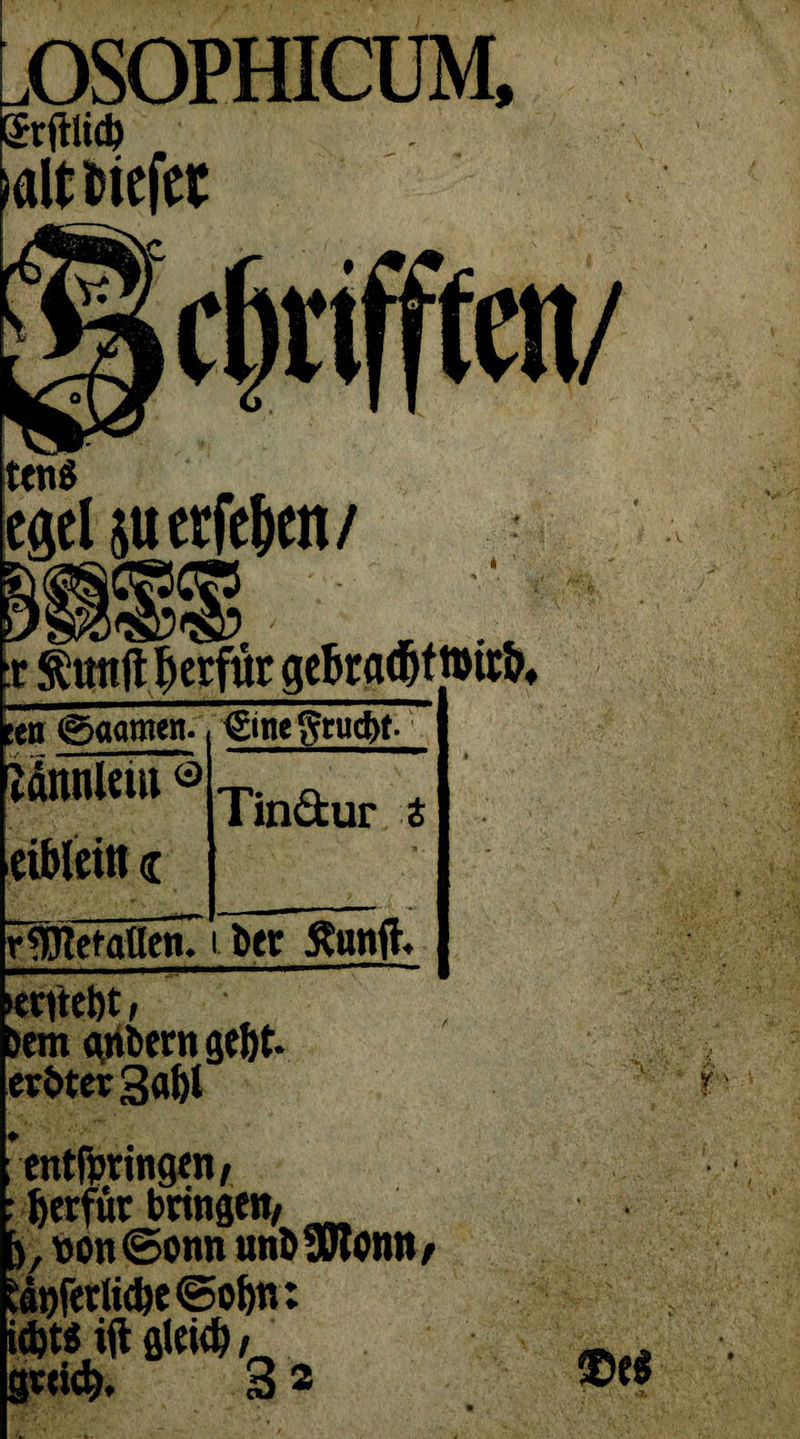 LOSOPHICUM,
Erstlich
alt dieser
Schrifften/
tens
egel zu ersehen/
r Kunst herfür gebracht wird.
en Saamen. Eine Frucht.
ännlein ☉ Tinctur
eiblein ☾
r Metallen. der Kunst.
ersteht,
dem andern geht.
erdter Zahl
entspringen,
herfür bringen,
von Sonn und Monn,
äyserliche Sohn:
ichts ist gleich,
greich. Z 2 Des